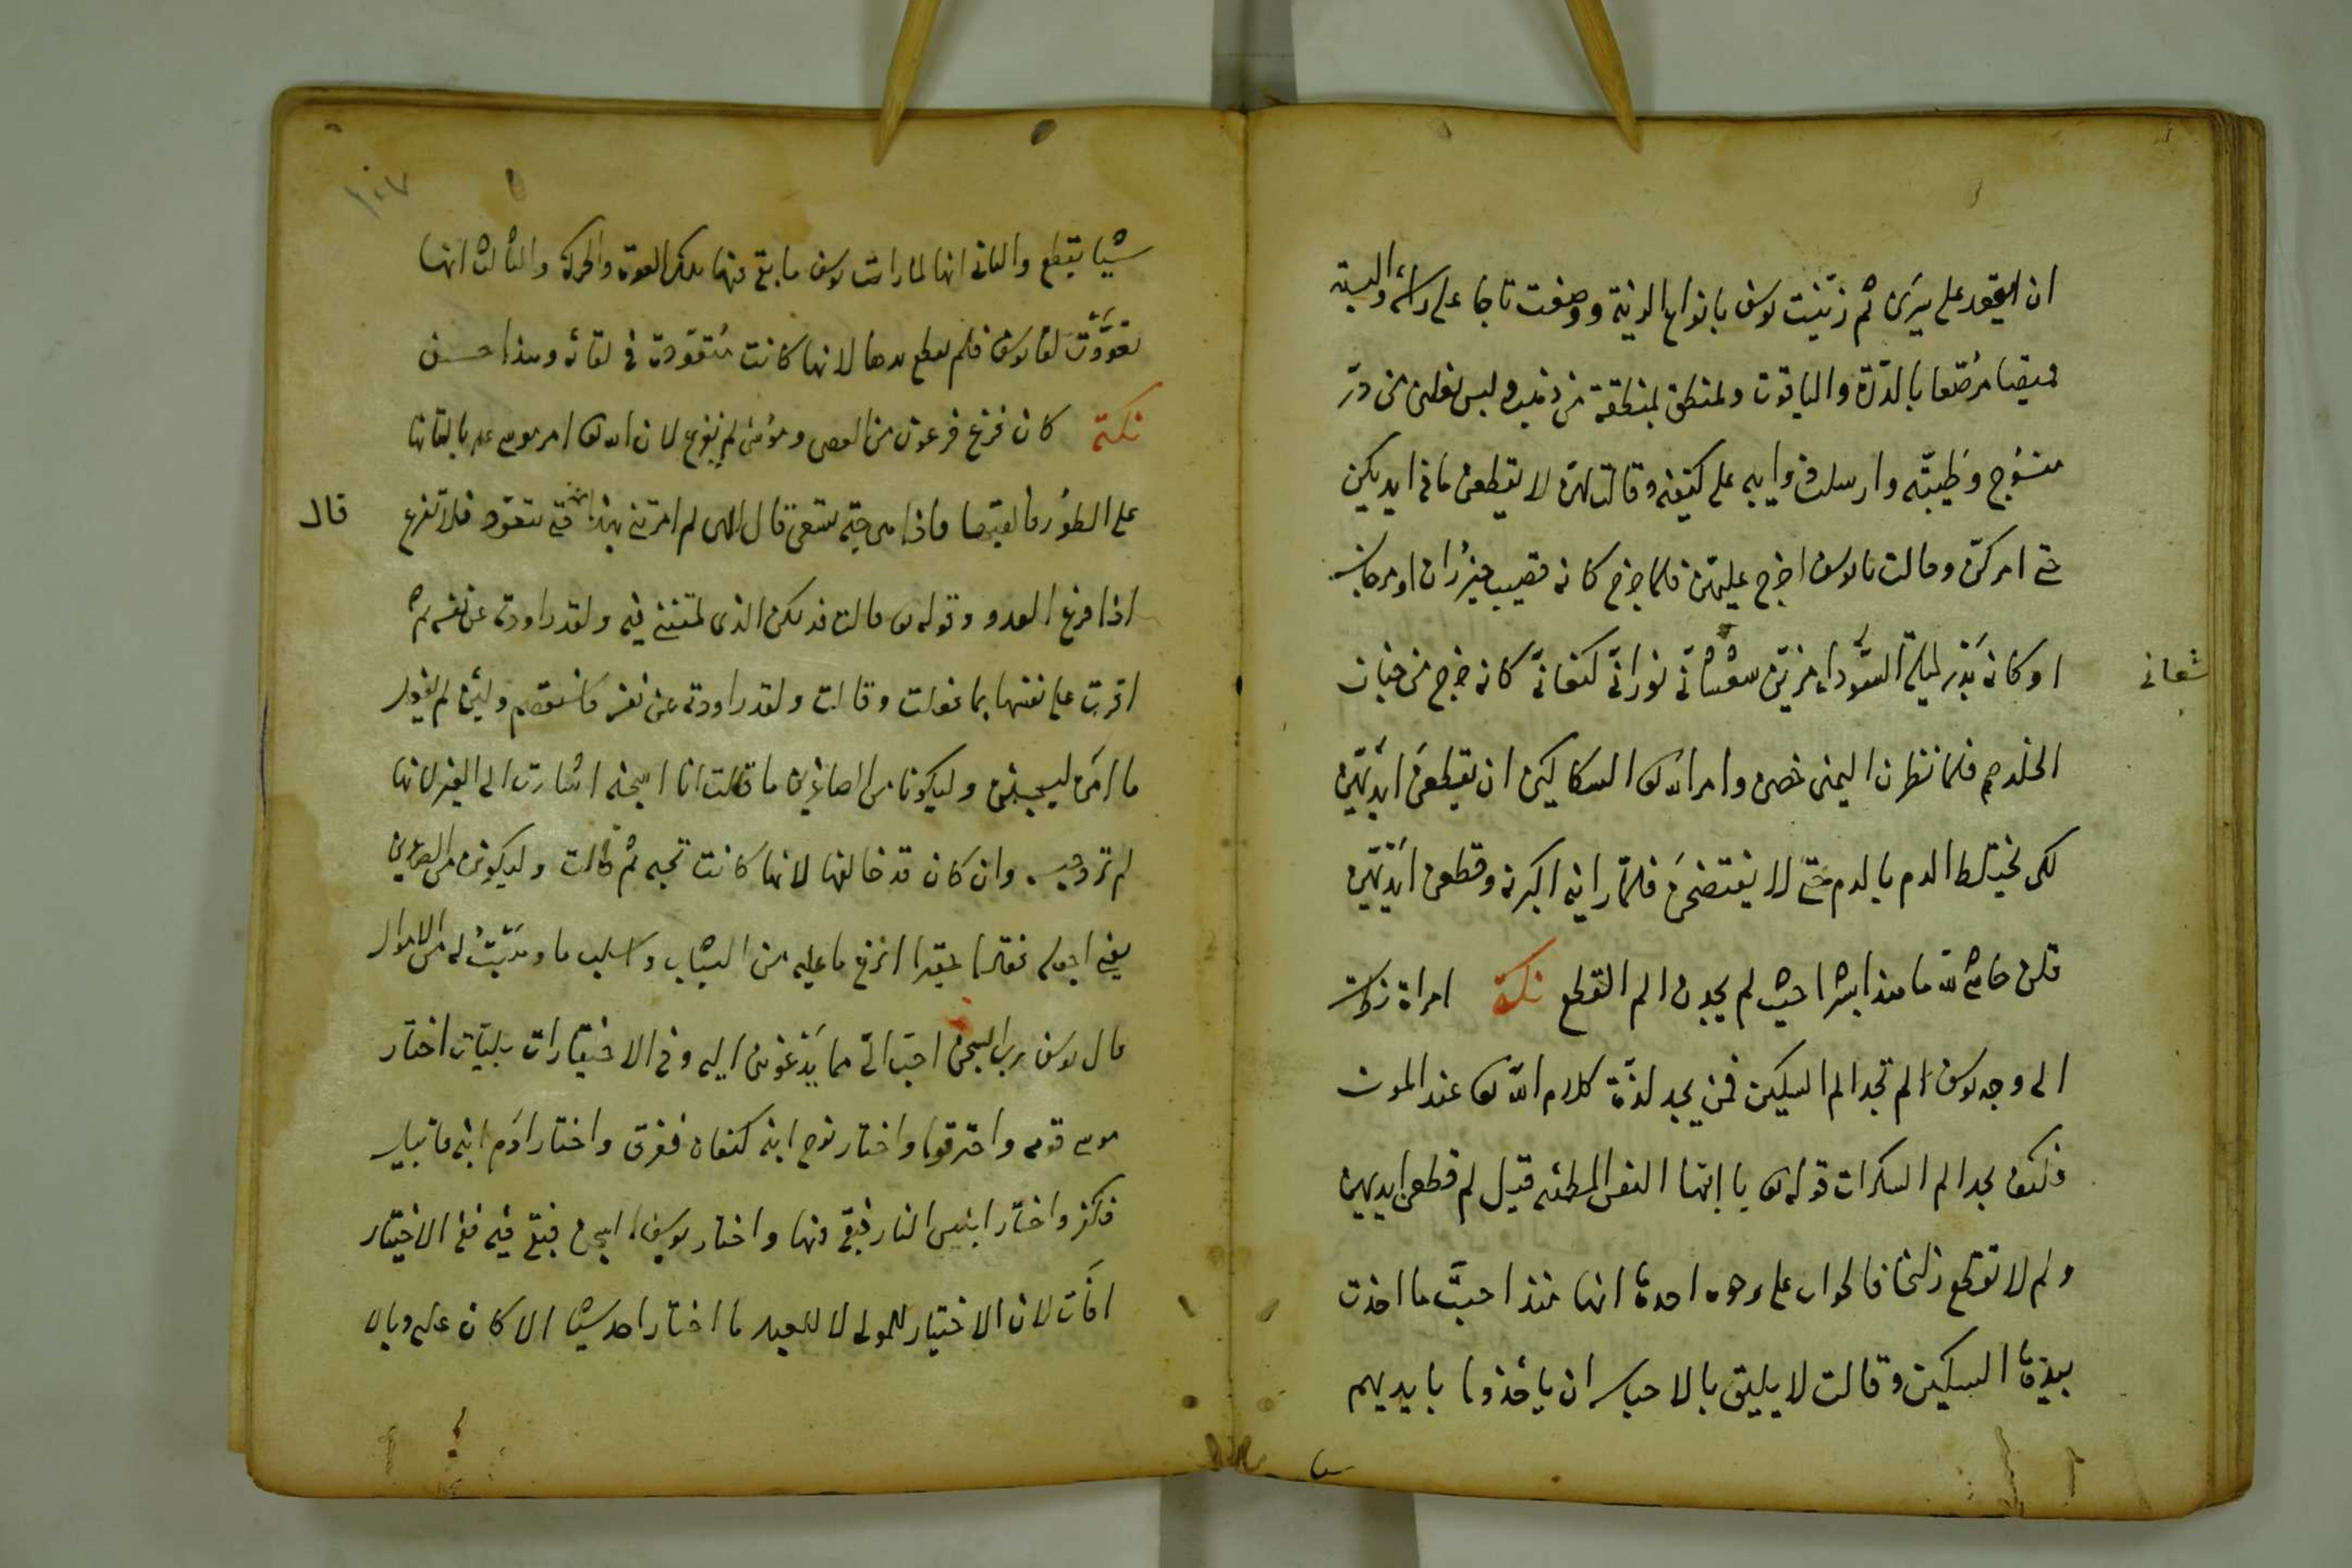 ان اقعد على سرى ثم زيّنت يوسف بانواع الزينة ووضعت تاجا على راسه والبسته
قميصا مرصّعا بالدّرّة والياقوت وتمنطق بمنطقة من ذهب ولبس نعلين من درّ
منسوج وطيبته وارسلت ذوايبه على كتفيه وقالت لهن لا تقطعن ما فى ايديكن
حتى امركنّ وقالت يا يوسف اخرج عليهن فلما خرج كانه قضيب خيزران او مرجان
شعانى
او كانه بدر ليلة السّوداء مزيّن نورانىّ كنعانىّ كانه خرج من جنات
الخلد فلما نظرن اليه حضن وامر الله تعالى السكاكين ان يقطعن ايديهنّ
لكى يختلط الدم بالدم حتى لا يفتضحن فلمّا راينه اكبرنه وقطعن ايديهنّ
قلن حاش لله ما هذا بشرا حيث لم يجدن الم القطع نكتة امراة نظرت
الى وجه يوسف لم تجد الم السكين فمن يجد لذّة كلام الله تعالى عند الموت
فكيف يجد الم السكرات قوله تعالى يا ايتها النفس المطمئنه قيل لم قطعن ايديهن
ولم لا تقطع زليخا فالجواب على وجوه احدها انها منذ احبّت ما اخذت
بيدها السكين وقالت لا يليق بالاحباس ان ياخذوا بايديهم
١٠٧
شيئا يقطع والثانى انها لما رات يوسف ما بقى فيها تلك القوة والحركة والثالث انها
تعوّدت لقا يوسف فلم يقطع يدها لانها كانت متعوّدة فى لقائه وهذا حسن
نكتة كان فزع فرعون من العصى وموسى لم يفزع لان الله تعالى امر موسى عم بالقائها
على الطور فالقيها فاذا هى حيّة تسعى قال الهى لم امرتنى بهذا حتى تتعوّد فلا تفزع
قال
اذا فزع العدو وقوله تعالى قالت فذلكن الذى لمتننى فيه ولقد راودته عن نفسه ثم
اقرت على نفسها بما فعلت وقالت ولقد راودته عن نفسه فاستعصم ولئن لم يفعل
ما امره ليسجنن وليكونا من الصاغرين ما قالت انا اسجنه اشارت الى الغير لانها
لم ترد حبسه وان كان قد خالفها لانها كانت تحبه ثم قالت وليكونن من الصاغرين
يعنى اجعله فقيرا حقيرا انزع ما عليه من الثياب واسلب ما وهبت له من الاموال
قال يوسف رب السجن احبّ الىّ مما يدعوننى اليه وفى الاختيارات بليّات اختار
موسى قومه واحترقوا واختار نوح ابنه كنعان فغرق واختار ادم ابنه قابيل
فكفر واختار ابليس النار فبقى فيها واختار يوسف السجن فبقى فيه ففى الاختيار
افات لان الاختيار للمولى لا للعبد ما اختار احد شيئا الا كان عليه وبالا